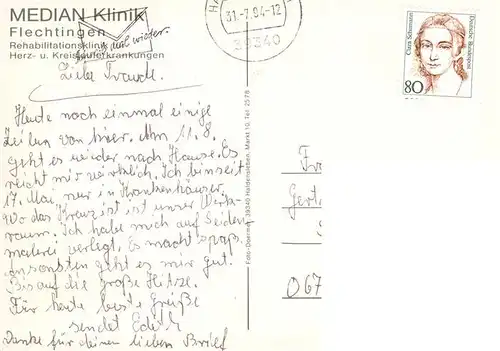 MEDIAN Klinik
Flechtingen
Rehabilitationsklinik
Herz- u. Kreislauferkrankungen
wieder.
31.-7.94-12
39340
Clara Schumann
Deutsche Bundespost
80
Liebe Traudl.
Heute noch einmal einige
Zeilen von hier. Am 11.8.
geht es wieder nach Hause. Es
reicht mir wirklich. Ich bin seit
17. Mai nur in Krankenhäuser.
Wo das Kreuz ist, ist unser
raum. Ich habe mich auf Seiden-
malerei verlegt. Es macht spaß.
Ansonsten geht es mir gut.
Bis auf die große Hitze.
Für heute beste Grüße
sendet Edith
Danke für deinen lieben Brief
Foto-Doermer, 39340 Haldensleben, Markt 10, Tel. 25 78
Fr
Gert
067